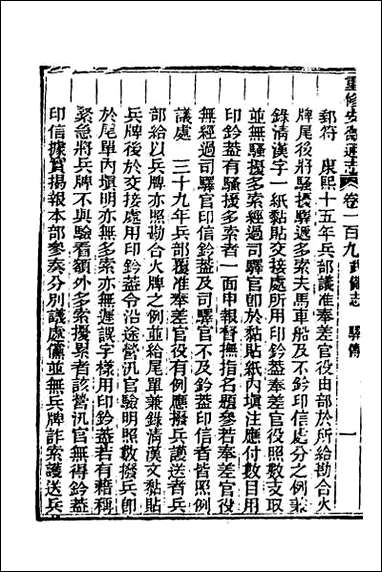 重修安徽通志 卷一百九 武備志 驛傳 一
郵符 康熙十五年兵部議准奉差官役由部於所給勘合火
牌尾後將騷擾驛遞多索夫馬車船及不鈐印信處分之例兼
錄淸漢字一紙黏貼交接處所用印鈐蓋奉差官役照數支取
並無騷擾多索經過司驛官卽於黏貼紙內塡注應付數目用
印鈐蓋有騷擾多索者一面申報督撫指名題參若奉差官役
無經過司驛官印信鈐蓋及司驛官不及鈐蓋印信者皆照例
議處 三十九年兵部覆准奉差官役有例應撥兵護送者兵
部給以兵牌亦照勘合火牌之例並給尾單兼錄淸漢文黏貼
兵牌後於交接處用印鈐蓋令沿途營汛官驗明照數撥兵卽
於尾單內塡明亦無多索亦無遲誤字樣用印鈐蓋若有藉稱
緊急將兵牌不與驗看額外多索擾累者該營汛官無得鈐蓋
印信據實揚報本部參奏分別議處儻並無兵牌詐索護送兵